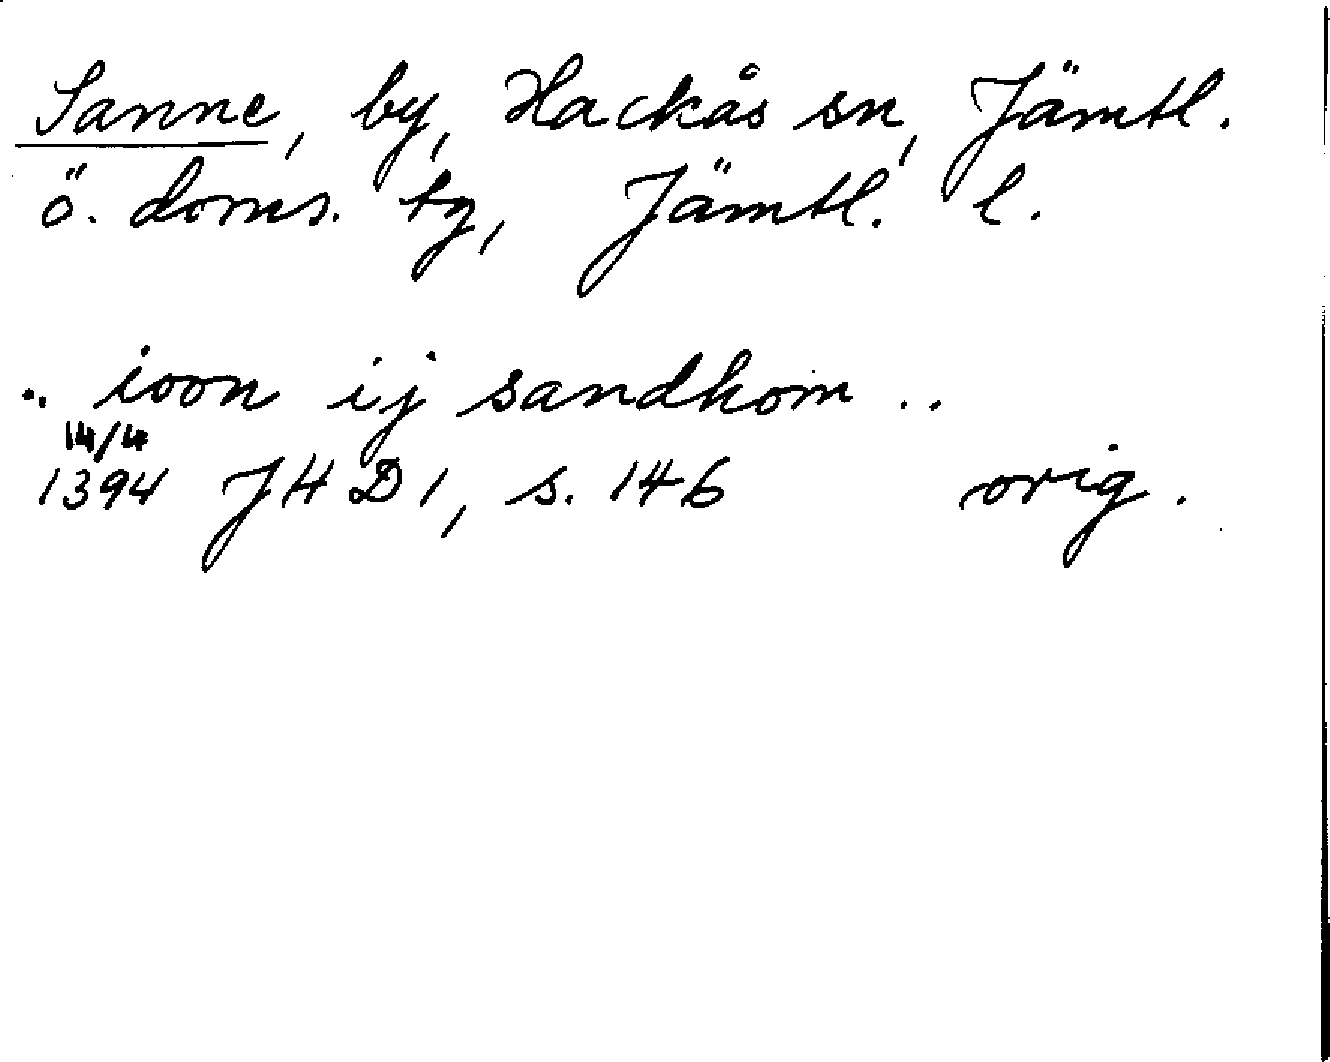 Sanne, by, Hackås sn, Jämtl.
ö. doms. tg, Jämtl. l.
.. ioon ij sandhom ..
14/4
1394 JHD 1, s. 146 orig.